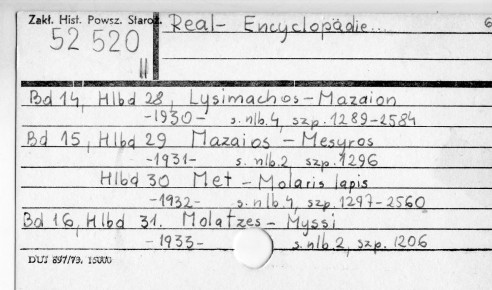 Zakł. Hist. Powsz. Staroż.
Real- Encyclopädie... 6
52 520
II
Bd 14, Hlbd 28, Lysimachos-Mazaion
-1930- s. nlb. 4, szp. 1289-2584
Bd 15, Hlbd 29 Mazaios - Mesyros
-1931- s. nlb. 2 szp. 1296
Hlbd 30 Met - Molaris lapis
-1932- s. nlb. 4, szp. 1297-2560
Bd 16, Hlbd 31. Molatzes - Myssi
-1933- s. nlb 2, szp. 1206
DUJ 897/73. 15000